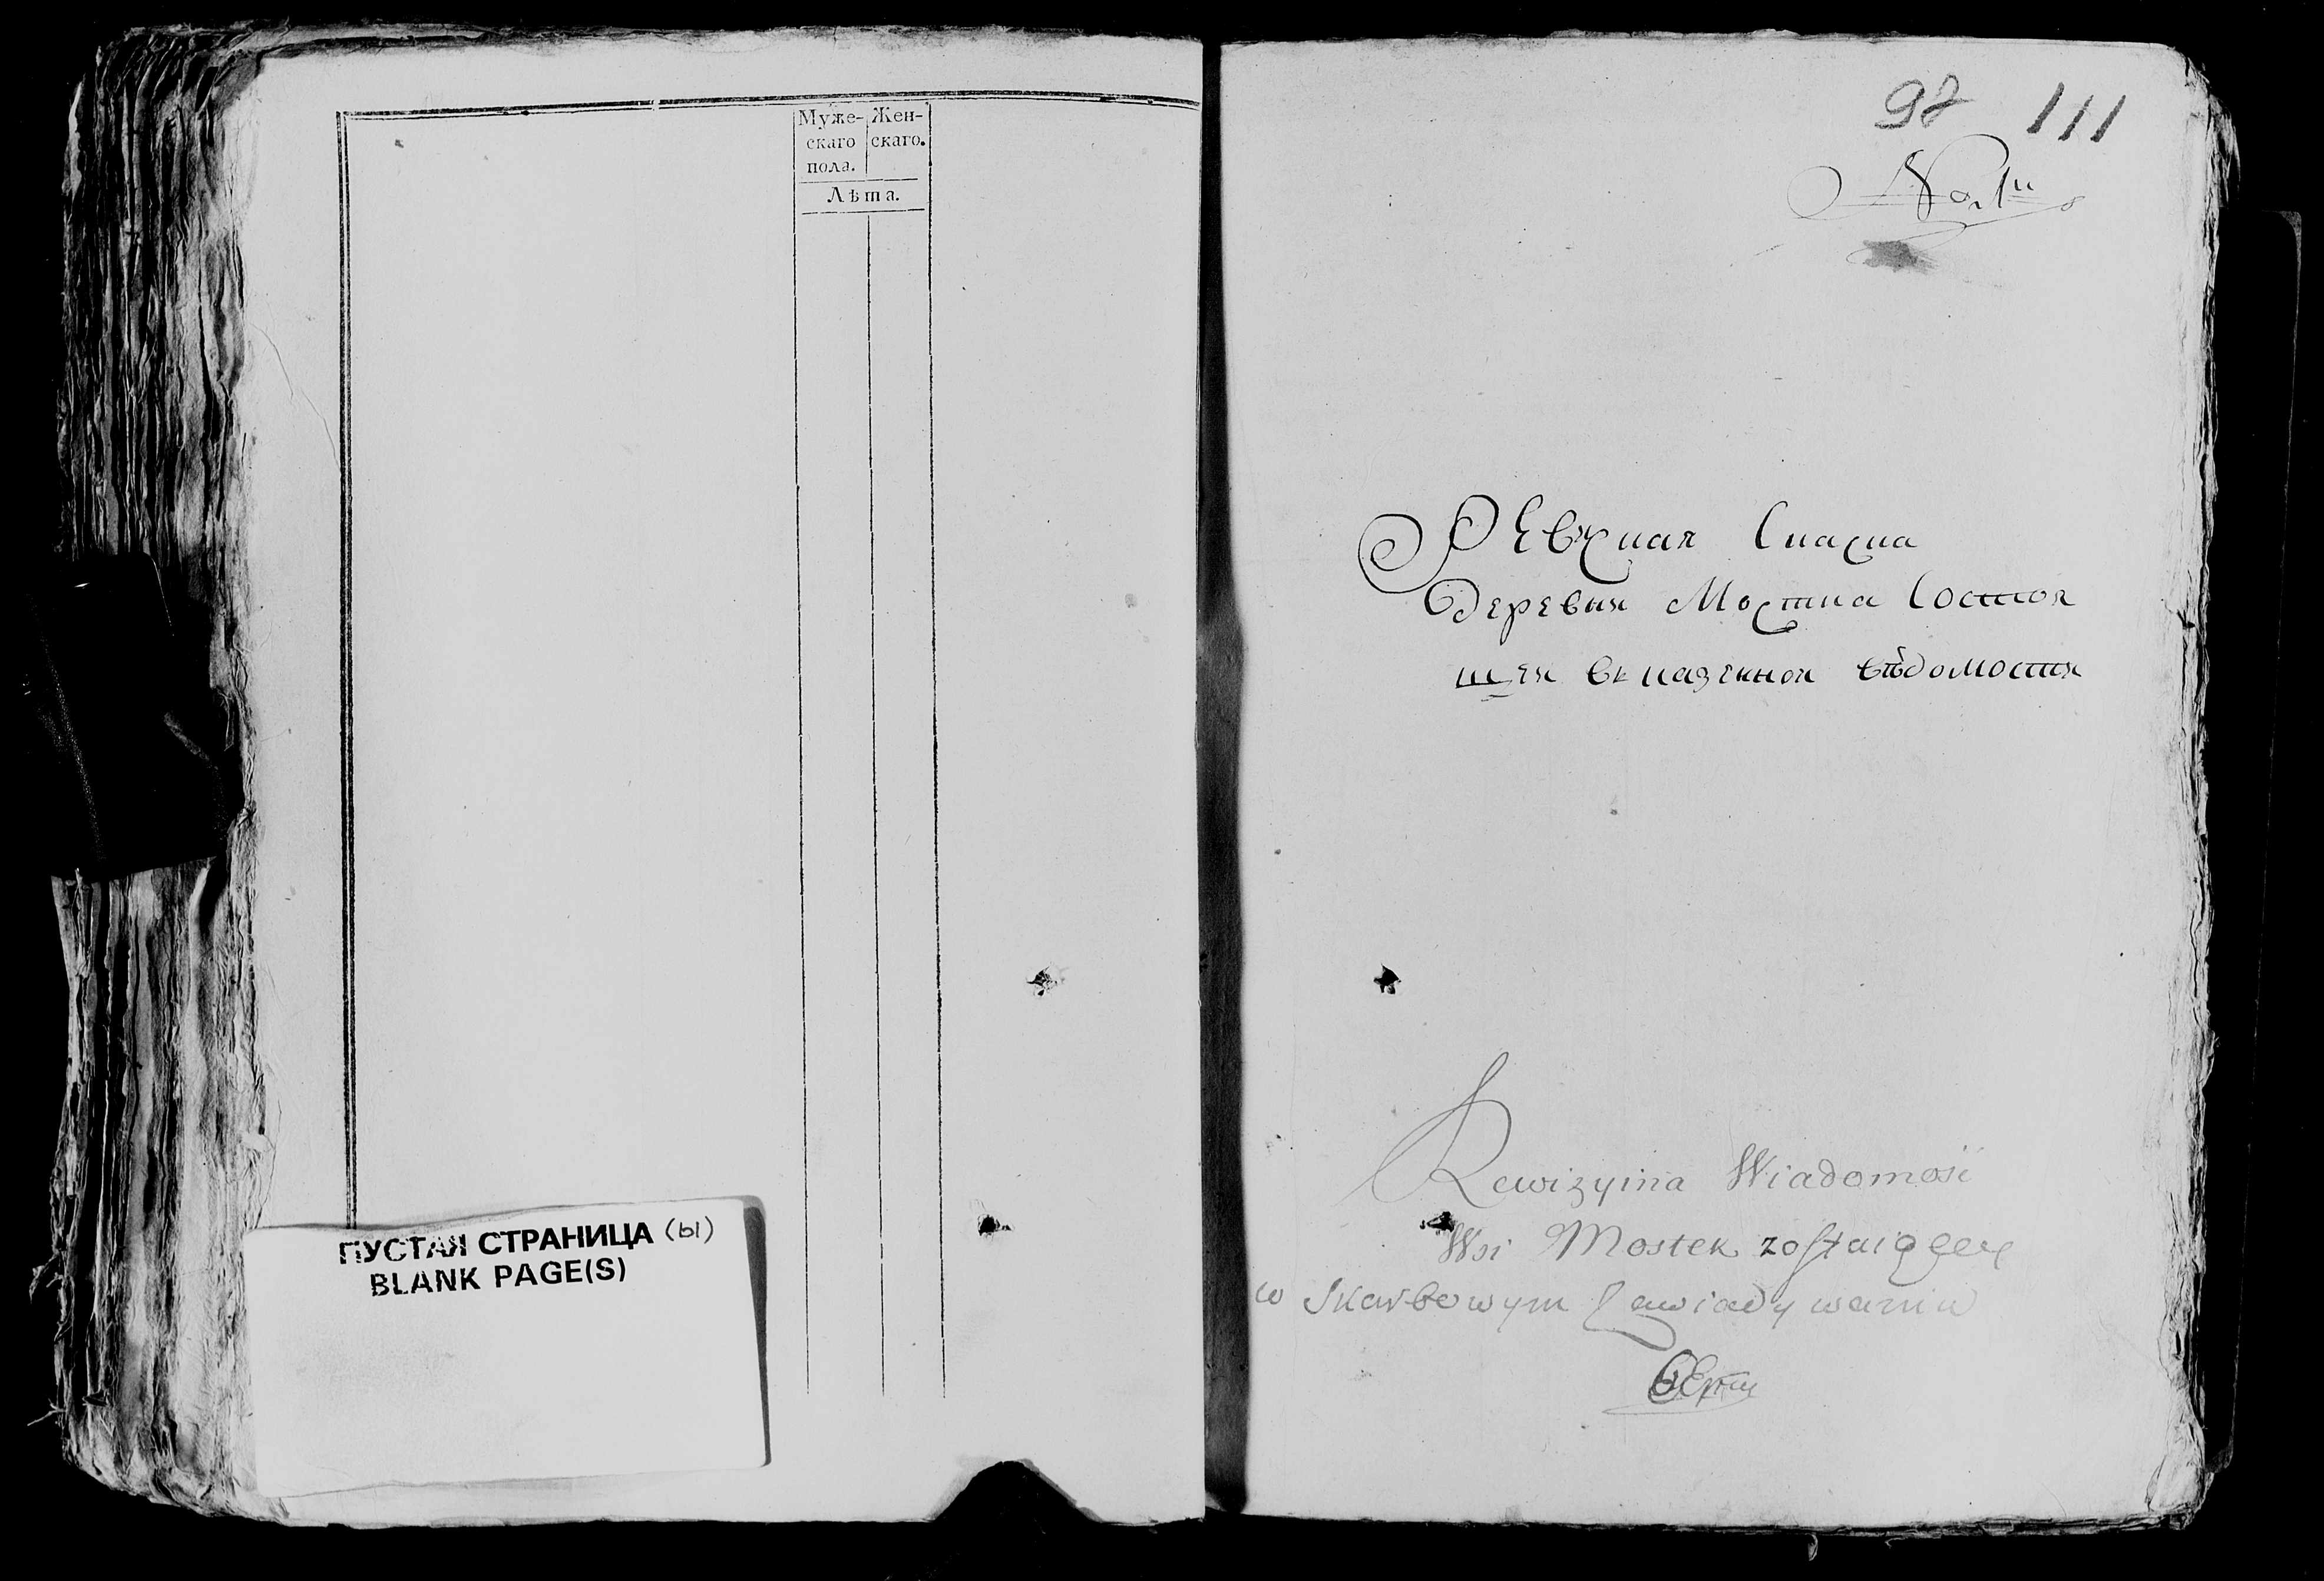 Муже-
скаго
пола.
Жен-
скаго.
Лѣта.
ПУСТАЯ СТРАНИЦА (ы)
BLANK PAGE(S)
97 111
No. 1
Ревзкая Сказка
Деревни Мостка Состоя
щей въ казенной вѣдомости
Rewizyina Wiadomość
Wsi Mostek zostaiącey
w Skarbowym Zawiadywaniu